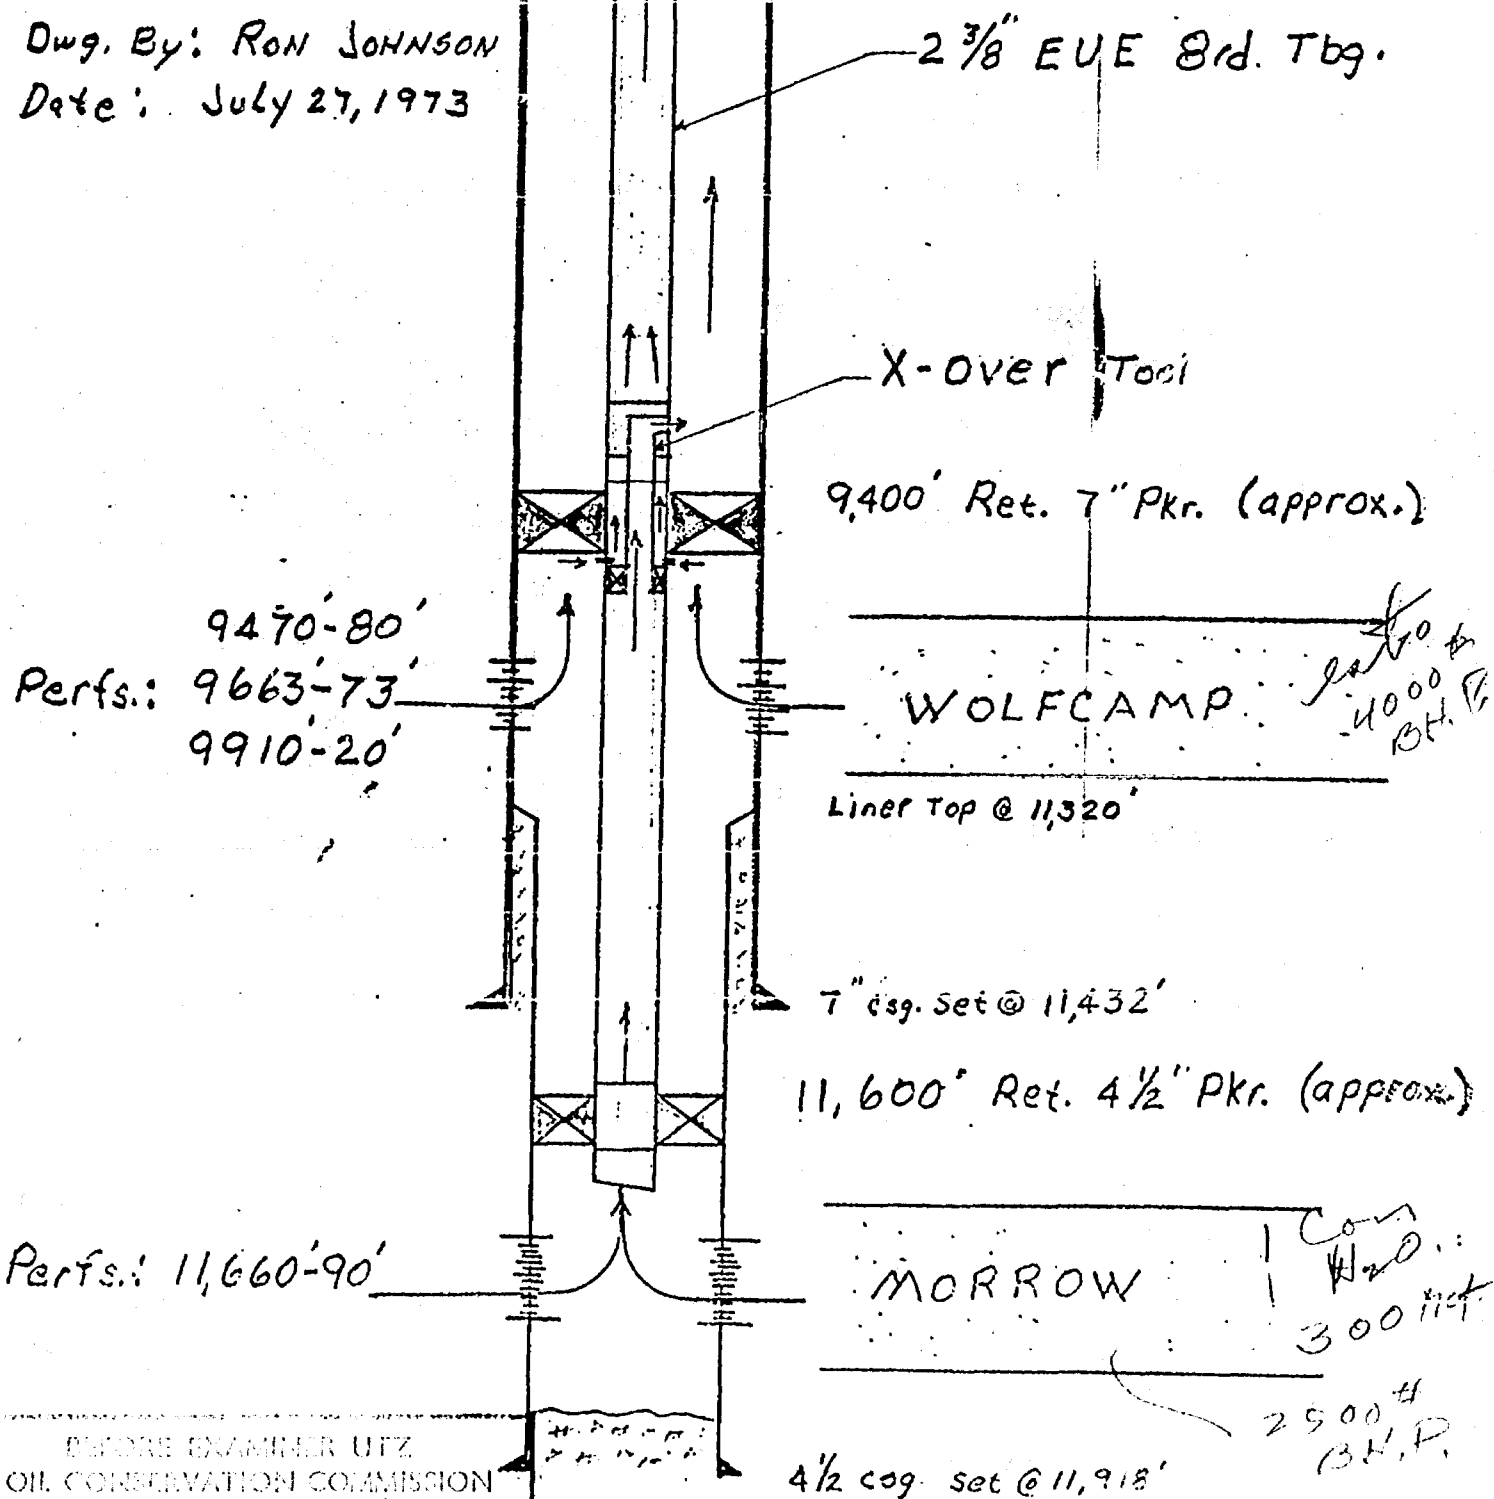 Dwg. By: RON JOHNSON
Date: July 27, 1973
2 3/8" EUE 8rd. Tbg.
X-Over Tool
9,400' Ret. 7" Pkr. (approx.)
9470'-80'
Perfs.: 9663'-73'
9910'-20'
WOLFCAMP
4000 #
B.H.P.
Liner Top @ 11,320'
7" csg. set @ 11,432'
11,600' Ret. 4 1/2" Pkr. (approx.)
Perfs.: 11,660'-90'
MORROW
H2O
300
2900 #
B.H.P.
BEFORE EXAMINER UTZ
OIL CONSERVATION COMMISSION
4 1/2 csg. set @ 11,918'